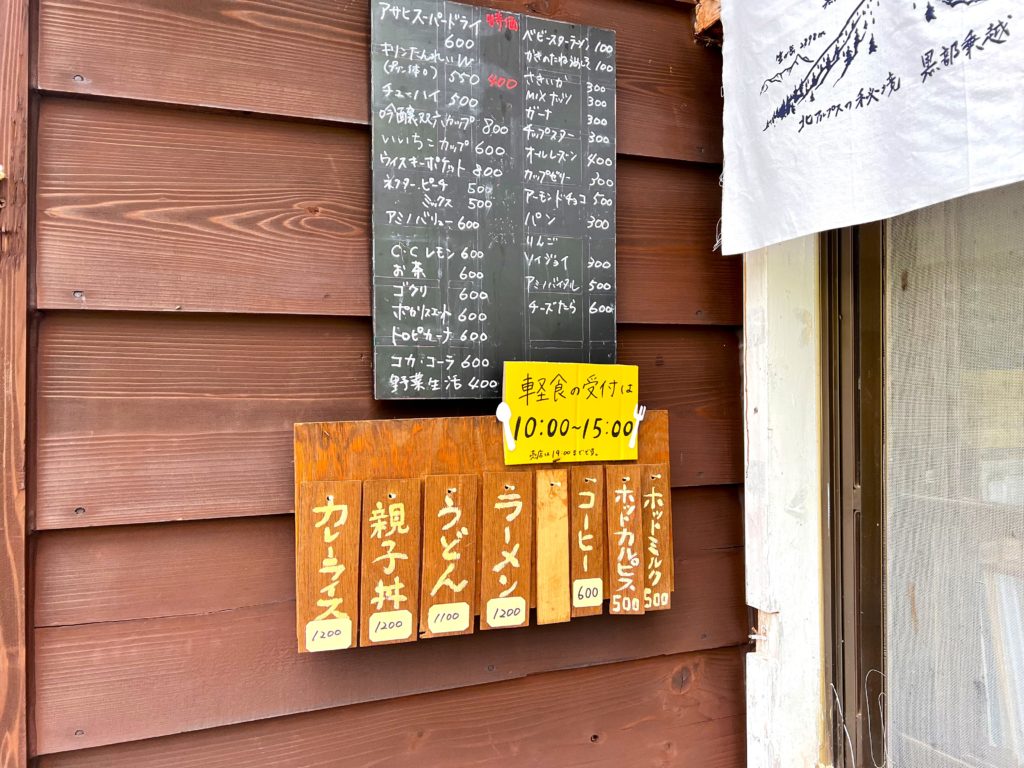 アサヒスーパードライ 特価
600
キリンたんれいW
550 400
チューハイ 500
吟醸双六カップ 800
いいちこカップ 600
ウイスキーポケット 800
ネクター ピーチ 500
ミックス 500
アミノバリュー 600
C.Cレモン 600
お茶 600
ゴクリ 600
ポカリスエット 600
トロピカーナ 600
コカ・コーラ 600
野菜生活 400
ベビースターラーメン 100
かきのたね 100
さきいか 300
MIXナッツ 300
ガーナ 300
チップスター 300
オールレーズン 400
カップゼリー 300
アーモンドチョコ 500
パン 300
りんご
ソイジョイ 300
アミノバイタル 500
チーズたら 600
軽食の受付は
10:00~15:00
売店は19:00までです。
カレーライス
1200
親子丼
1200
うどん
1100
ラーメン
1200
コーヒー
600
ホットカルピス
500
ホットミルク
500
北アルプスの秘境
黒部乗越